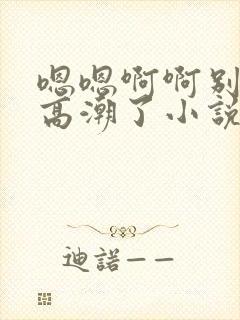 嗯嗯啊啊别
高潮了小説
迪諾——